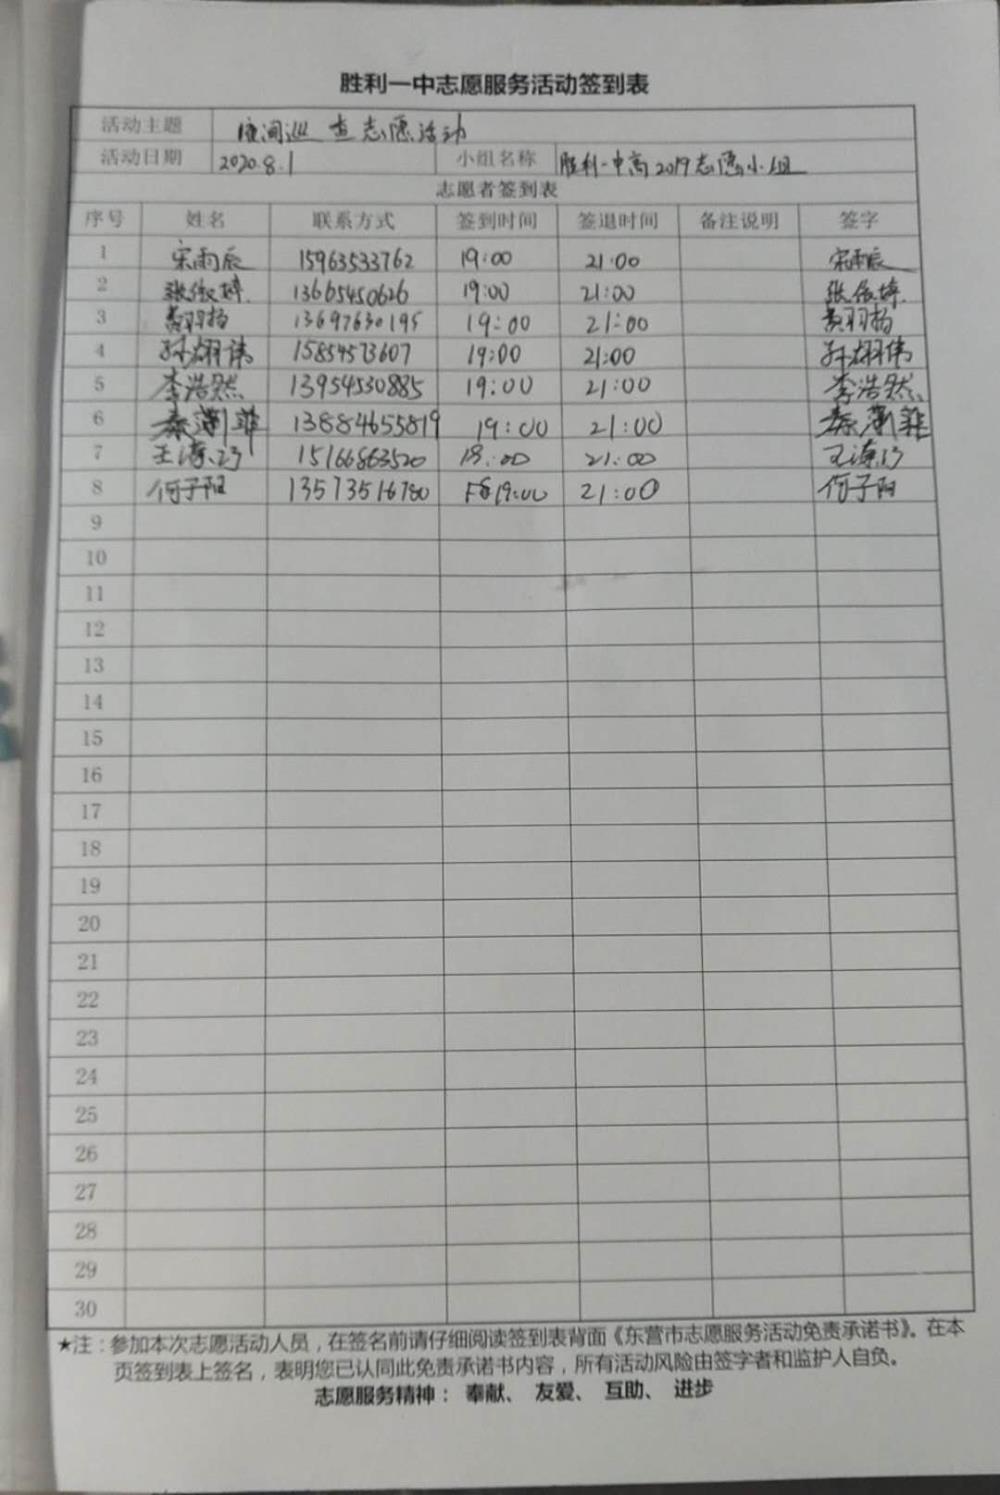 胜利一中志愿服务活动签到表
活动主题 夜间巡查志愿活动
活动日期 2020.8.1 小组名称 胜利一中高2019志愿小组
志愿者签到表
序号 姓名 联系方式 签到时间 签退时间 备注说明 签字
1 宋雨辰 15963533762 19:00 21:00 宋雨辰
2 张 婷 13665450626 19:00 21:00 张 婷
3 黄羽扬 13697630195 19:00 21:00 黄羽扬
4 孙翊伟 15854573607 19:00 21:00 孙翊伟
5 李浩然 13954530885 19:00 21:00 李浩然
6 秦 菲 13884655819 19:00 21:00 秦 菲
7 王 15166863520 19:00 21:00 王
8 何子阳 13573516780 19:00 21:00 何子阳
9
10
11
12
13
14
15
16
17
18
19
20
21
22
23
24
25
26
27
28
29
30
★注：参加本次志愿活动人员，在签名前请仔细阅读签到表背面《东营市志愿服务活动免责承诺书》。在本
页签到表上签名，表明您已认同此免责承诺书内容，所有活动风险由签字者和监护人自负。
志愿服务精神： 奉献、 友爱、 互助、 进步